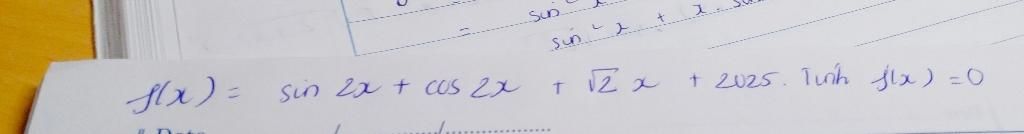 sin
= sin² x + x.
f(x) = sin 2x + cos 2x + √2 x + 2025. Tính f'(x) = 0